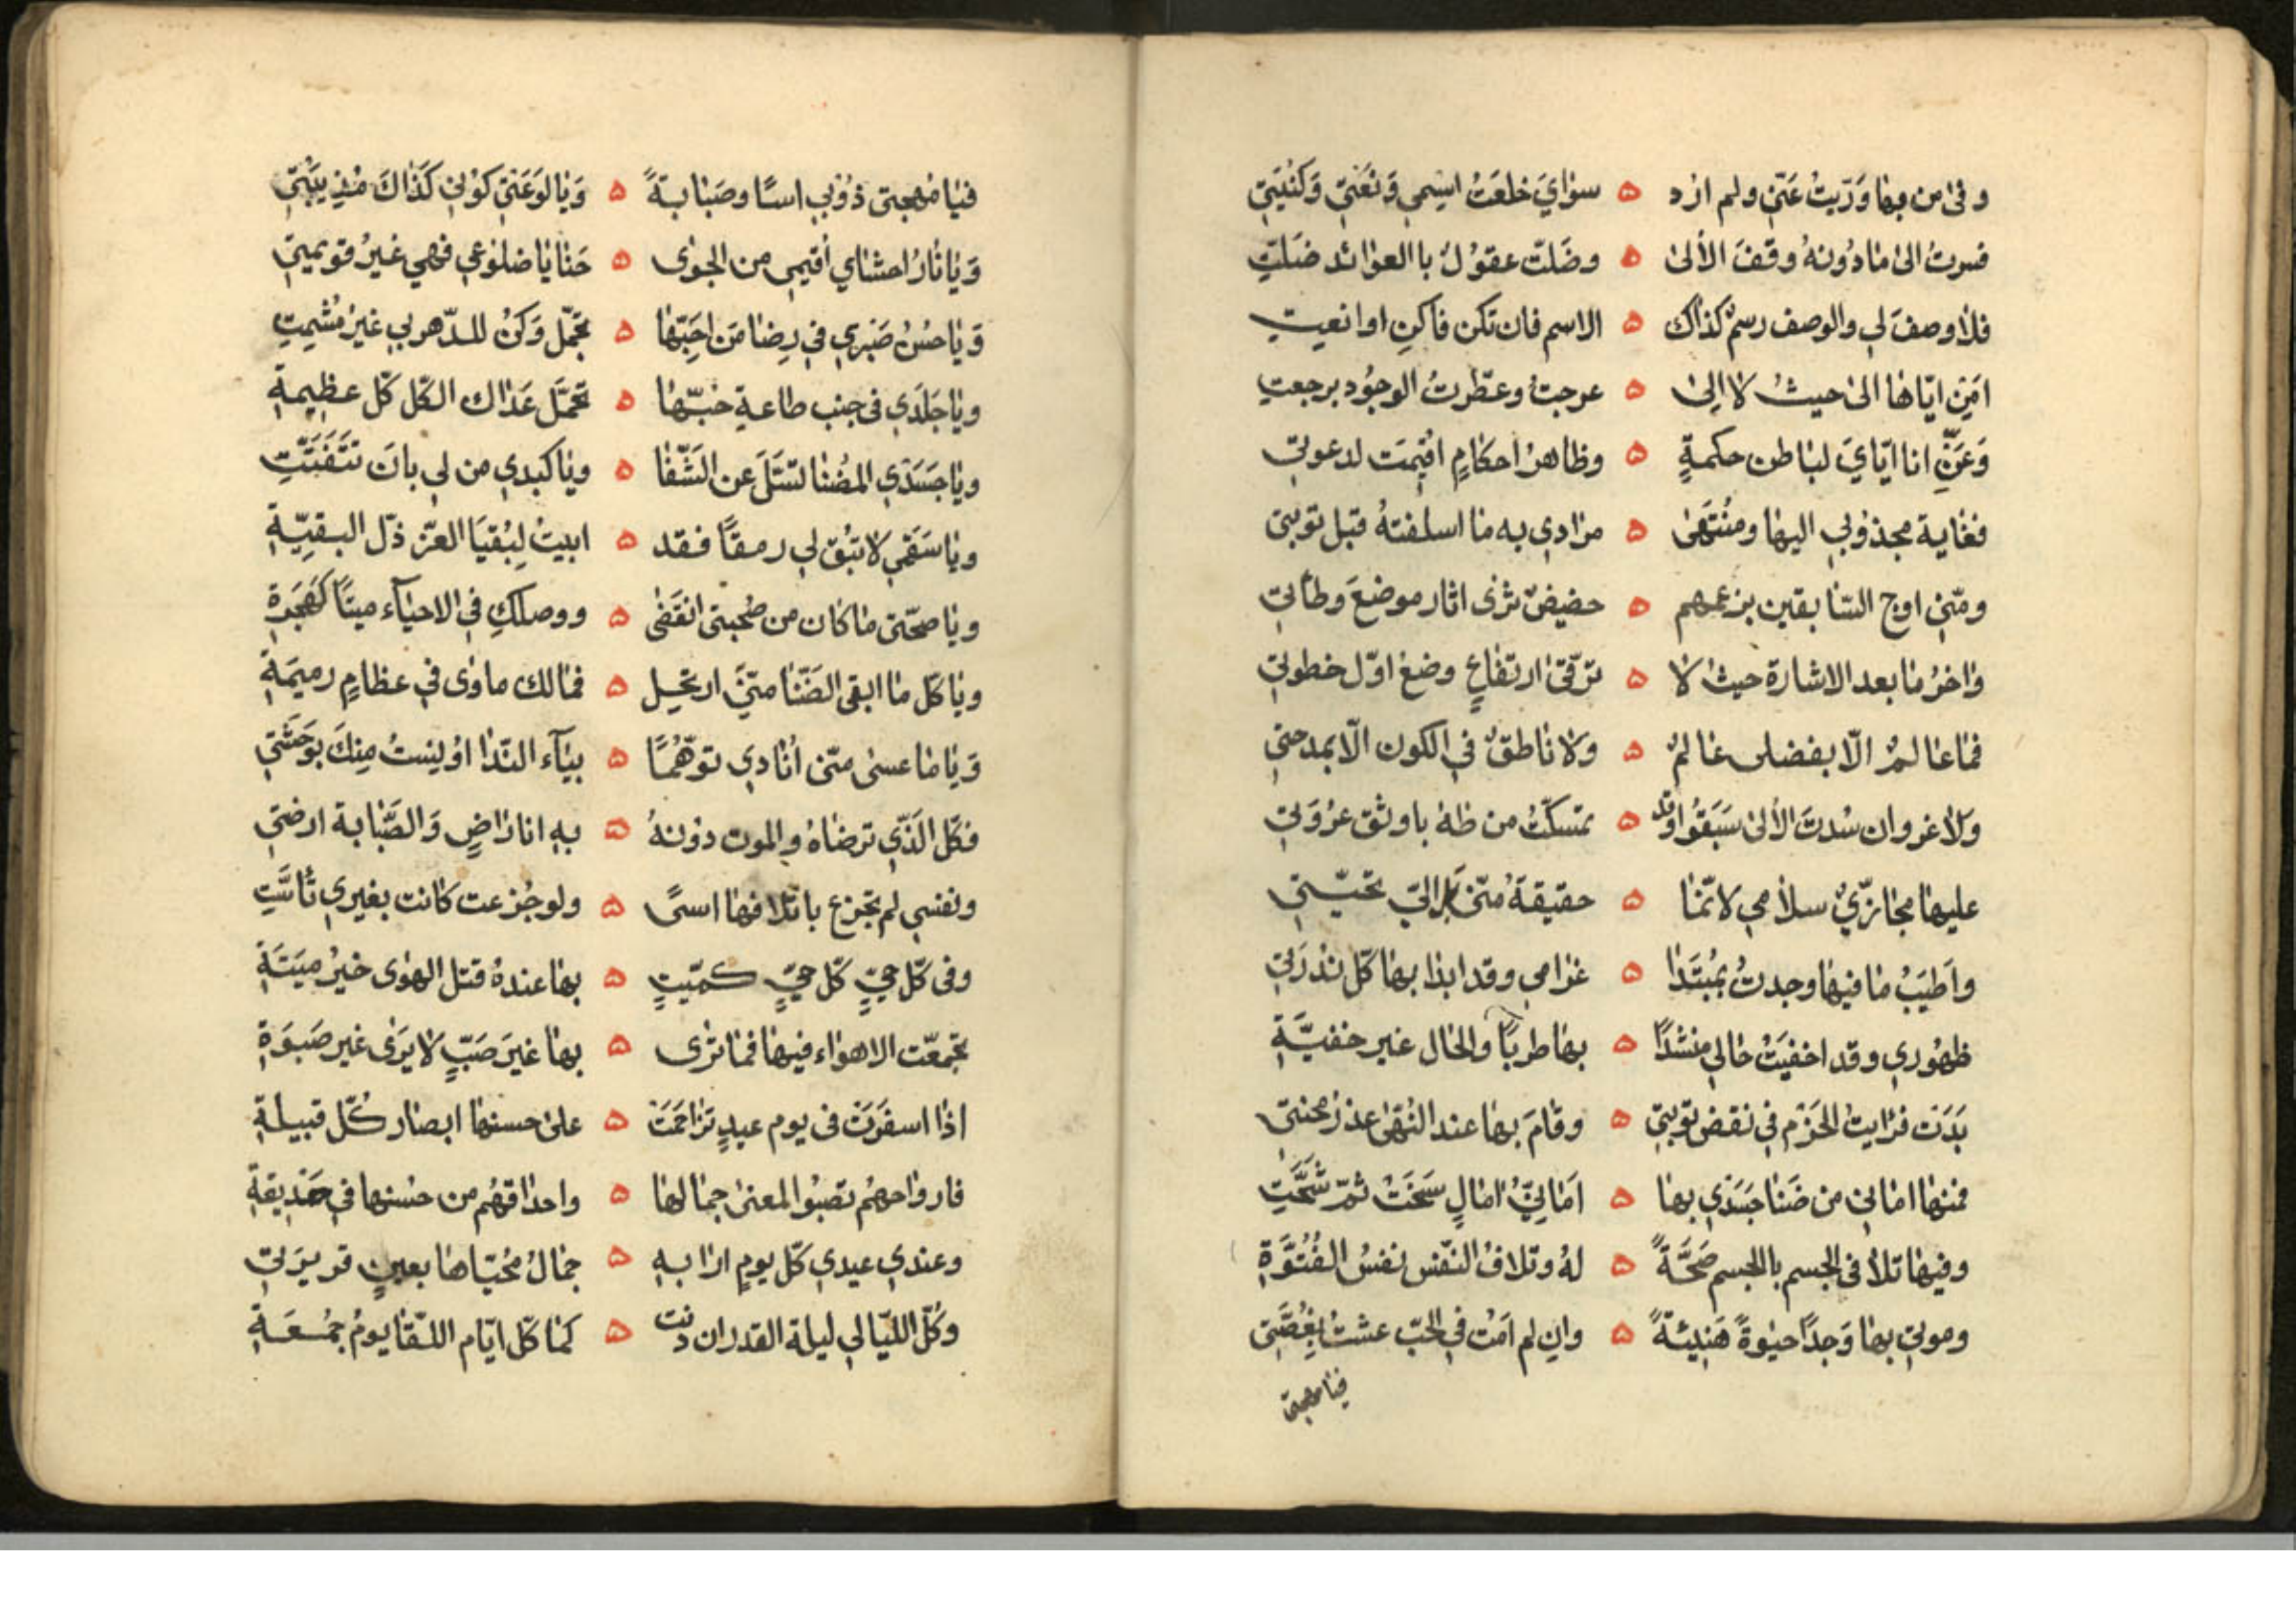 وفي من بها ورّيتُ عنّي ولم ارد ۵ سوايَ خلعتُ اسمي ونعتي وكنيتي
فسرت الى ما دونهُ وقف الألى ۵ وضلّت عقولٌ باالعوائد ضلتِ
فلا وصفَ لي والوصف رسمٌ كذاك ۵ الاسم فان تكن فاكنِ اوانعتِ
امن ايّاها الى حيثُ لا الى ۵ عرجتُ وعطّرتُ الوجُود برجعتِ
وعنّي انا ايّايَ لباطن حكمةٍ ۵ وظاهرُ احكامٍ اقيمت لدعوتي
فغاية مجذوبي اليها ومنتهى ۵ مرادي به ما اسلفتهُ قبل توبتي
ومنّي اوج السابقين بزعمهم ۵ حضيضٌ ثرى اثار موضعَ وطأتي
واخرُ ما بعد الاشارة حيثُ لا ۵ ترقّى ارتفاعٍ وضعُ اوّل خطوتي
فما عالمٌ الّا بفضلى عالمٌ ۵ ولا ناطقٌ في الكون الّا بمدحتي
ولا غروان سُدتُ الألى سَبَقُوا وقد ۵ تمسكّتُ من طه باوثق عُروَتي
عليها مجازيٌّ سلامي لانّما ۵ حقيقةُ منّي بل اليّ تحيّتي
واَطيَبُ ما فيها وجدتُ بمُبتَدا ۵ غرامي وقد ابدا بها كلّ نذرَتي
ظهوري وقد اخفيتُ حالي منشدًا ۵ بها طربًا والحال غير خفيّةِ
بَدَت فرايتُ الحَزم في نقض توبتي ۵ وقامَ بها عند النُهى عذر محنتي
فمنها اماني من ضَنا جَسَدي بها ۵ اَمانيُّ امالٍ سَخَتْ ثمّ شَحَّتِ
وفيها تلا في الجسم باالجسم صَحَّةً ۵ لهُ وتلافُ النّفس نفسُ الفُتُوَّةِ
وموتي بها وَجدًا حيوةً هَنِيئةً ۵ وان لم اَمُت في الحبّ عشتُ بِغُصّتي
فيا مهجتي
فيا مُهجتي ذُوبي اسًا وصَبابةً ۵ وَيا لوعَتي كوُني كذاكَ مُذيبَتي
وَيا نارُ احشاي أقيمي من الجوى ۵ حنايا ضلوعي فهي غيرُ قويمتي
وَيا حُسنُ صَبري في رِضا مَن احِبّها ۵ تجمّل وَكنْ للدّهر بي غيرَ مُشمِتِ
ويا جَلَدي في جنب طاعةِ حُبّها ۵ تحمّل عَداك الكلّ كلّ عظيمةِ
ويا جَسَدي المضنا تسَلَّ عن الشّفا ۵ ويا كبدي من لي بانَ تتَفَتّتِ
ويا سَقمي لا تبُق لي رمقًا فقد ۵ ابيتُ لِبُقيَا العزّ ذلّ البقيّةِ
ويا صحّتي ما كان من صُحبتي انقَضى ۵ ووصلكِ في الاحياء ميتًا كهَجرَةِ
ويا كلّ ما ابقى الضّنا منّيَ ارتحل ۵ فمالك ماوى في عظامٍ رميمَةِ
وَيا ما عسى منّي أنادي توهّمًا ۵ بياء الندّا اوُنِستُ مِنكَ بوَحشَتي
فكلّ الذّي ترضاهُ والموت دونهُ ۵ بهِ انا راضٍ وَالصّبابة ارضتي
ونفسي لم تجزع باتلافها اسىً ۵ ولو جُزعت كانت بغيري تأسّتِ
وفي كلّ حيٍّ كلّ حيٍّ كميّتٍ ۵ بها عندهُ قتل الهوى خيرُ ميتَةِ
تجمعّت الاهواء فيها فما ترى ۵ بها غيرَ صَبٍّ لا يَرَى غير صَبوَةِ
اذا اسفَرَت في يوم عيدٍ تزاحَمَت ۵ على حسنها ابصار كُلّ قبيلةِ
فارواحهُم تصبُوا لمعنى جمالها ۵ واحداقهُم من حُسنها في حَديقةِ
وعندي عيدي كلّ يومٍ ارا بهِ ۵ جمالُ مُحيّاها بعينٍ قريرَتي
وكلّ الليّالي ليلة القدر ان دنت ۵ كما كلّ ايّام اللّقا يومُ جُمُعَةِ